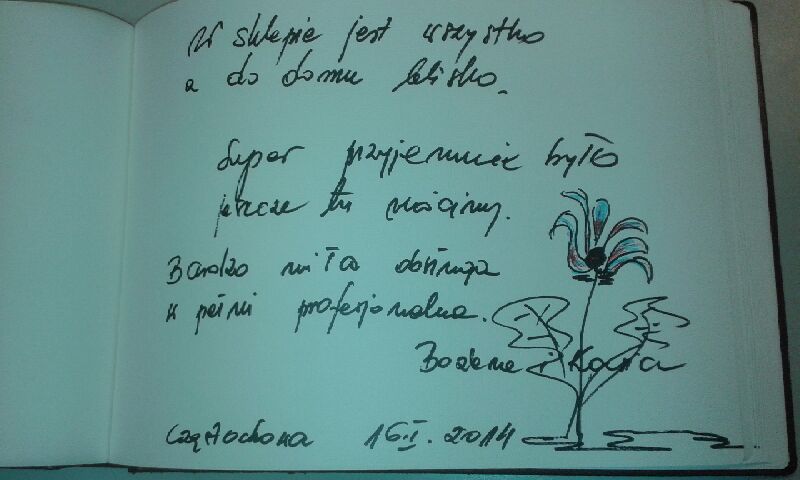 W sklepie jest wszystko
a do domu blisko.
Super przyjemnie było
jeszcze tu wrócimy.
Bardzo miła obsługa
w pełni profesjonalna.
Bożena i Kasia
Częstochowa 16.I.2014